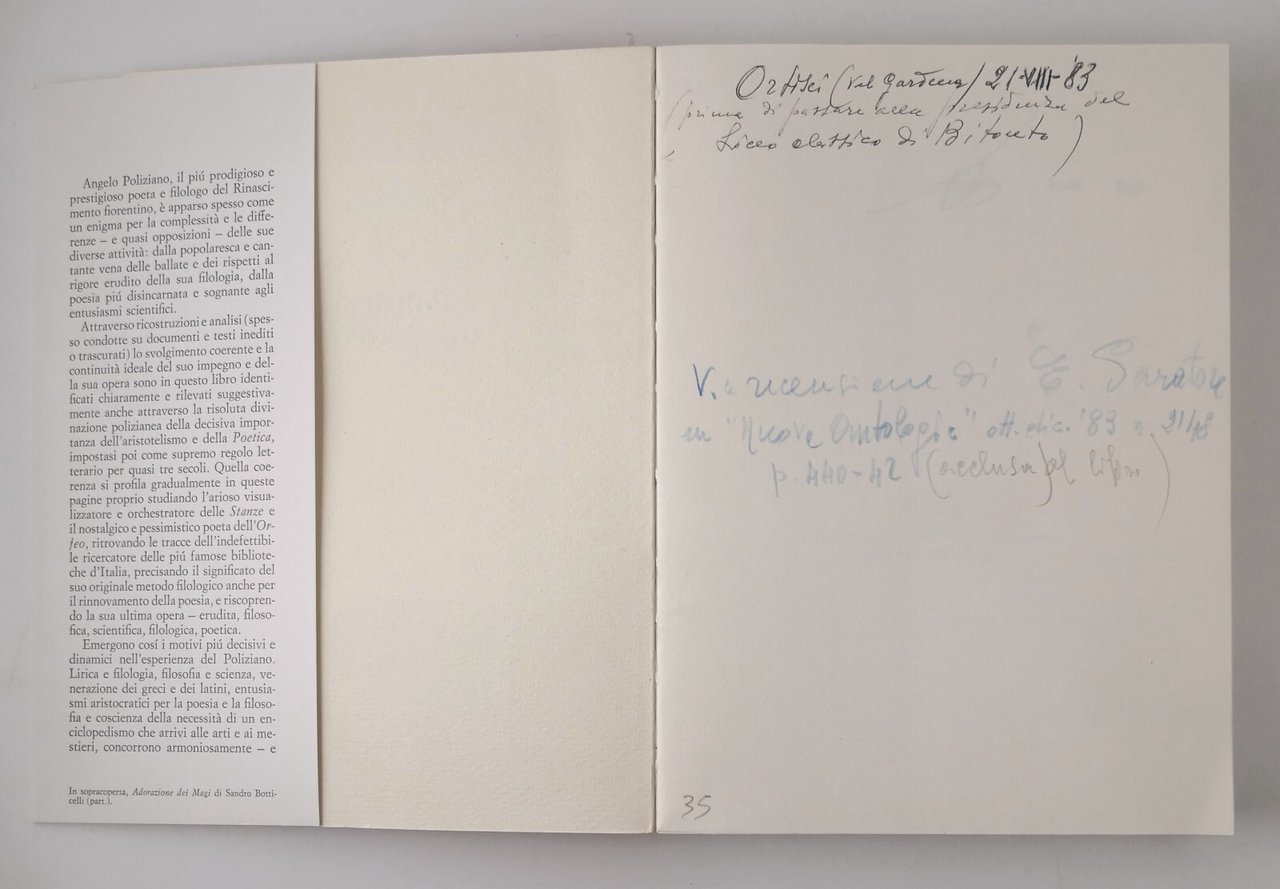 Angelo Poliziano, il piú prodigioso e
prestigioso poeta e filologo del Rinasci-
mento fiorentino, è apparso spesso come
un enigma per la complessità e le diffe-
renze – e quasi opposizioni – delle sue
diverse attività: dalla popolaresca e can-
tante vena delle ballate e dei rispetti al
rigore erudito della sua filologia, dalla
poesia piú disincarnata e sognante agli
entusiasmi scientifici.
Attraverso ricostruzioni e analisi (spes-
so condotte su documenti e testi inediti
o trascurati) lo svolgimento coerente e la
continuità ideale del suo impegno e del-
la sua opera sono in questo libro identi-
ficati chiaramente e rilevati suggestiva-
mente anche attraverso la risoluta divi-
nazione polizianea della decisiva impor-
tanza dell'aristotelismo e della Poetica,
impostasi poi come supremo regolo let-
terario per quasi tre secoli. Quella coe-
renza si profila gradualmente in queste
pagine proprio studiando l'arioso visua-
lizzatore e orchestratore delle Stanze e
il nostalgico e pessimistico poeta dell'Or-
feo, ritrovando le tracce dell'indefettibi-
le ricercatore delle piú famose bibliote-
che d'Italia, precisando il significato del
suo originale metodo filologico anche per
il rinnovamento della poesia, e riscopren-
do la sua ultima opera – erudita, filoso-
fica, scientifica, filologica, poetica.
Emergono cosí i motivi piú decisivi e
dinamici nell'esperienza del Poliziano.
Lirica e filologia, filosofia e scienza, ve-
nerazione dei greci e dei latini, entusia-
smi aristocratici per la poesia e la filoso-
fia e coscienza della necessità di un en-
ciclopedismo che arrivi alle arti e ai me-
stieri, concorrono armoniosamente – e
In sopracoperta, Adorazione dei Magi di Sandro Botti-
celli (part.).
Ortisei (Val Gardena) 21-VIII-'83
(prima di passare alla presidenza del
Liceo classico di Bitonto)
V. recensione di E. Paratore
in "Nuova Antologia" ott. dic. '83 n. 2148
p. 440-42 (acclusa al libro)
35